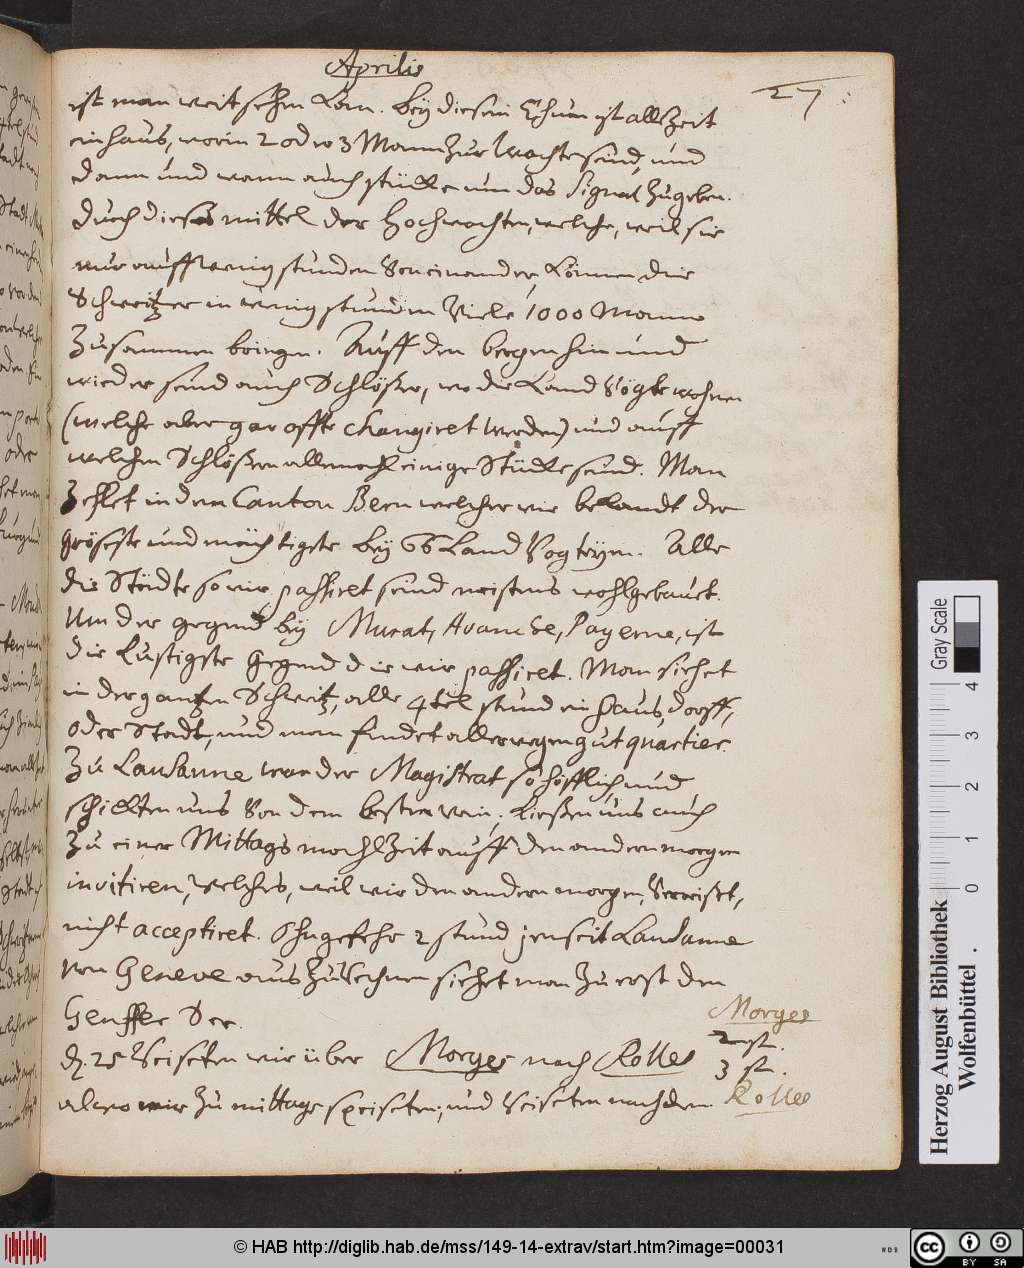 Aprilis
27.
ist man weit sehen kan. bey diesem Thurn ist allzeit
ein haus, worin 2 oder 3 Mann zur Wachte seind, und
dann und wann auch stücke um das Signal zu geben.
durch dieses mittel der hochwachten, welche, weil sie
nur auff wenig stunden von einander, können die
Schweitzer in wenig stunden viele 1000 Mann
zusammen bringen. Auff den bergen hin und
wieder seind auch Schlößer, wo die Land Vögte wohnen
(welche aber gar offte changiret werden) und auff
welchen Schlößern allemahl einige Stücke seind. Man
zehlet in dem Canton Bern welcher wie bekandt der
gröseste und mächtigste bey 66 Land Vogteyen. Alle
die Städte so wir passiret seind meistens wohlgebauet.
Um der gegend bey Murat, Avanche, Payerne, ist
die Lustigste gegend die wir passiret. Man siehet
in der gantzen Schweitz, alle 4tel stund ein haus, dorff,
oder Stadt, und man findet allerwegen gut quartier.
Zu Lausanne war der Magistrat so höfflich und
schickten uns von dem besten wein, ließen uns auch
zu einer Mittags mahlzeit auff den andern morgen
invitiren, welches, weil wir den andern morgen verreiset,
nicht acceptiret. Ohngefehr 2 stund jenseit Lausanne
von Geneve aus zu rechnen siehet man zu erst den
Genffer See.
Morges
2 st.
d. 25 reiseten wir über Morges nach Rolle
3 st.
alwo wir zu mittage speiseten, und reiseten nachdem
Rolle
Herzog August Bibliothek
Wolfenbüttel
Gray Scale
0 1 2 3 4
© HAB http://diglib.hab.de/mss/149-14-extrav/start.htm?image=00031
cc BY SA